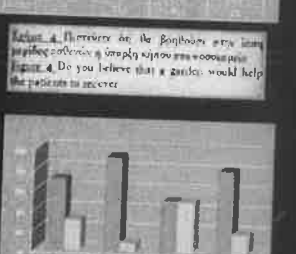 4 Πιστεύετε ότι θα βοηθούσε στην
η ύπαρξη κήπου στο νοσοκομείο
Figure 4 Do you believe that a garden would help
the patients to recover